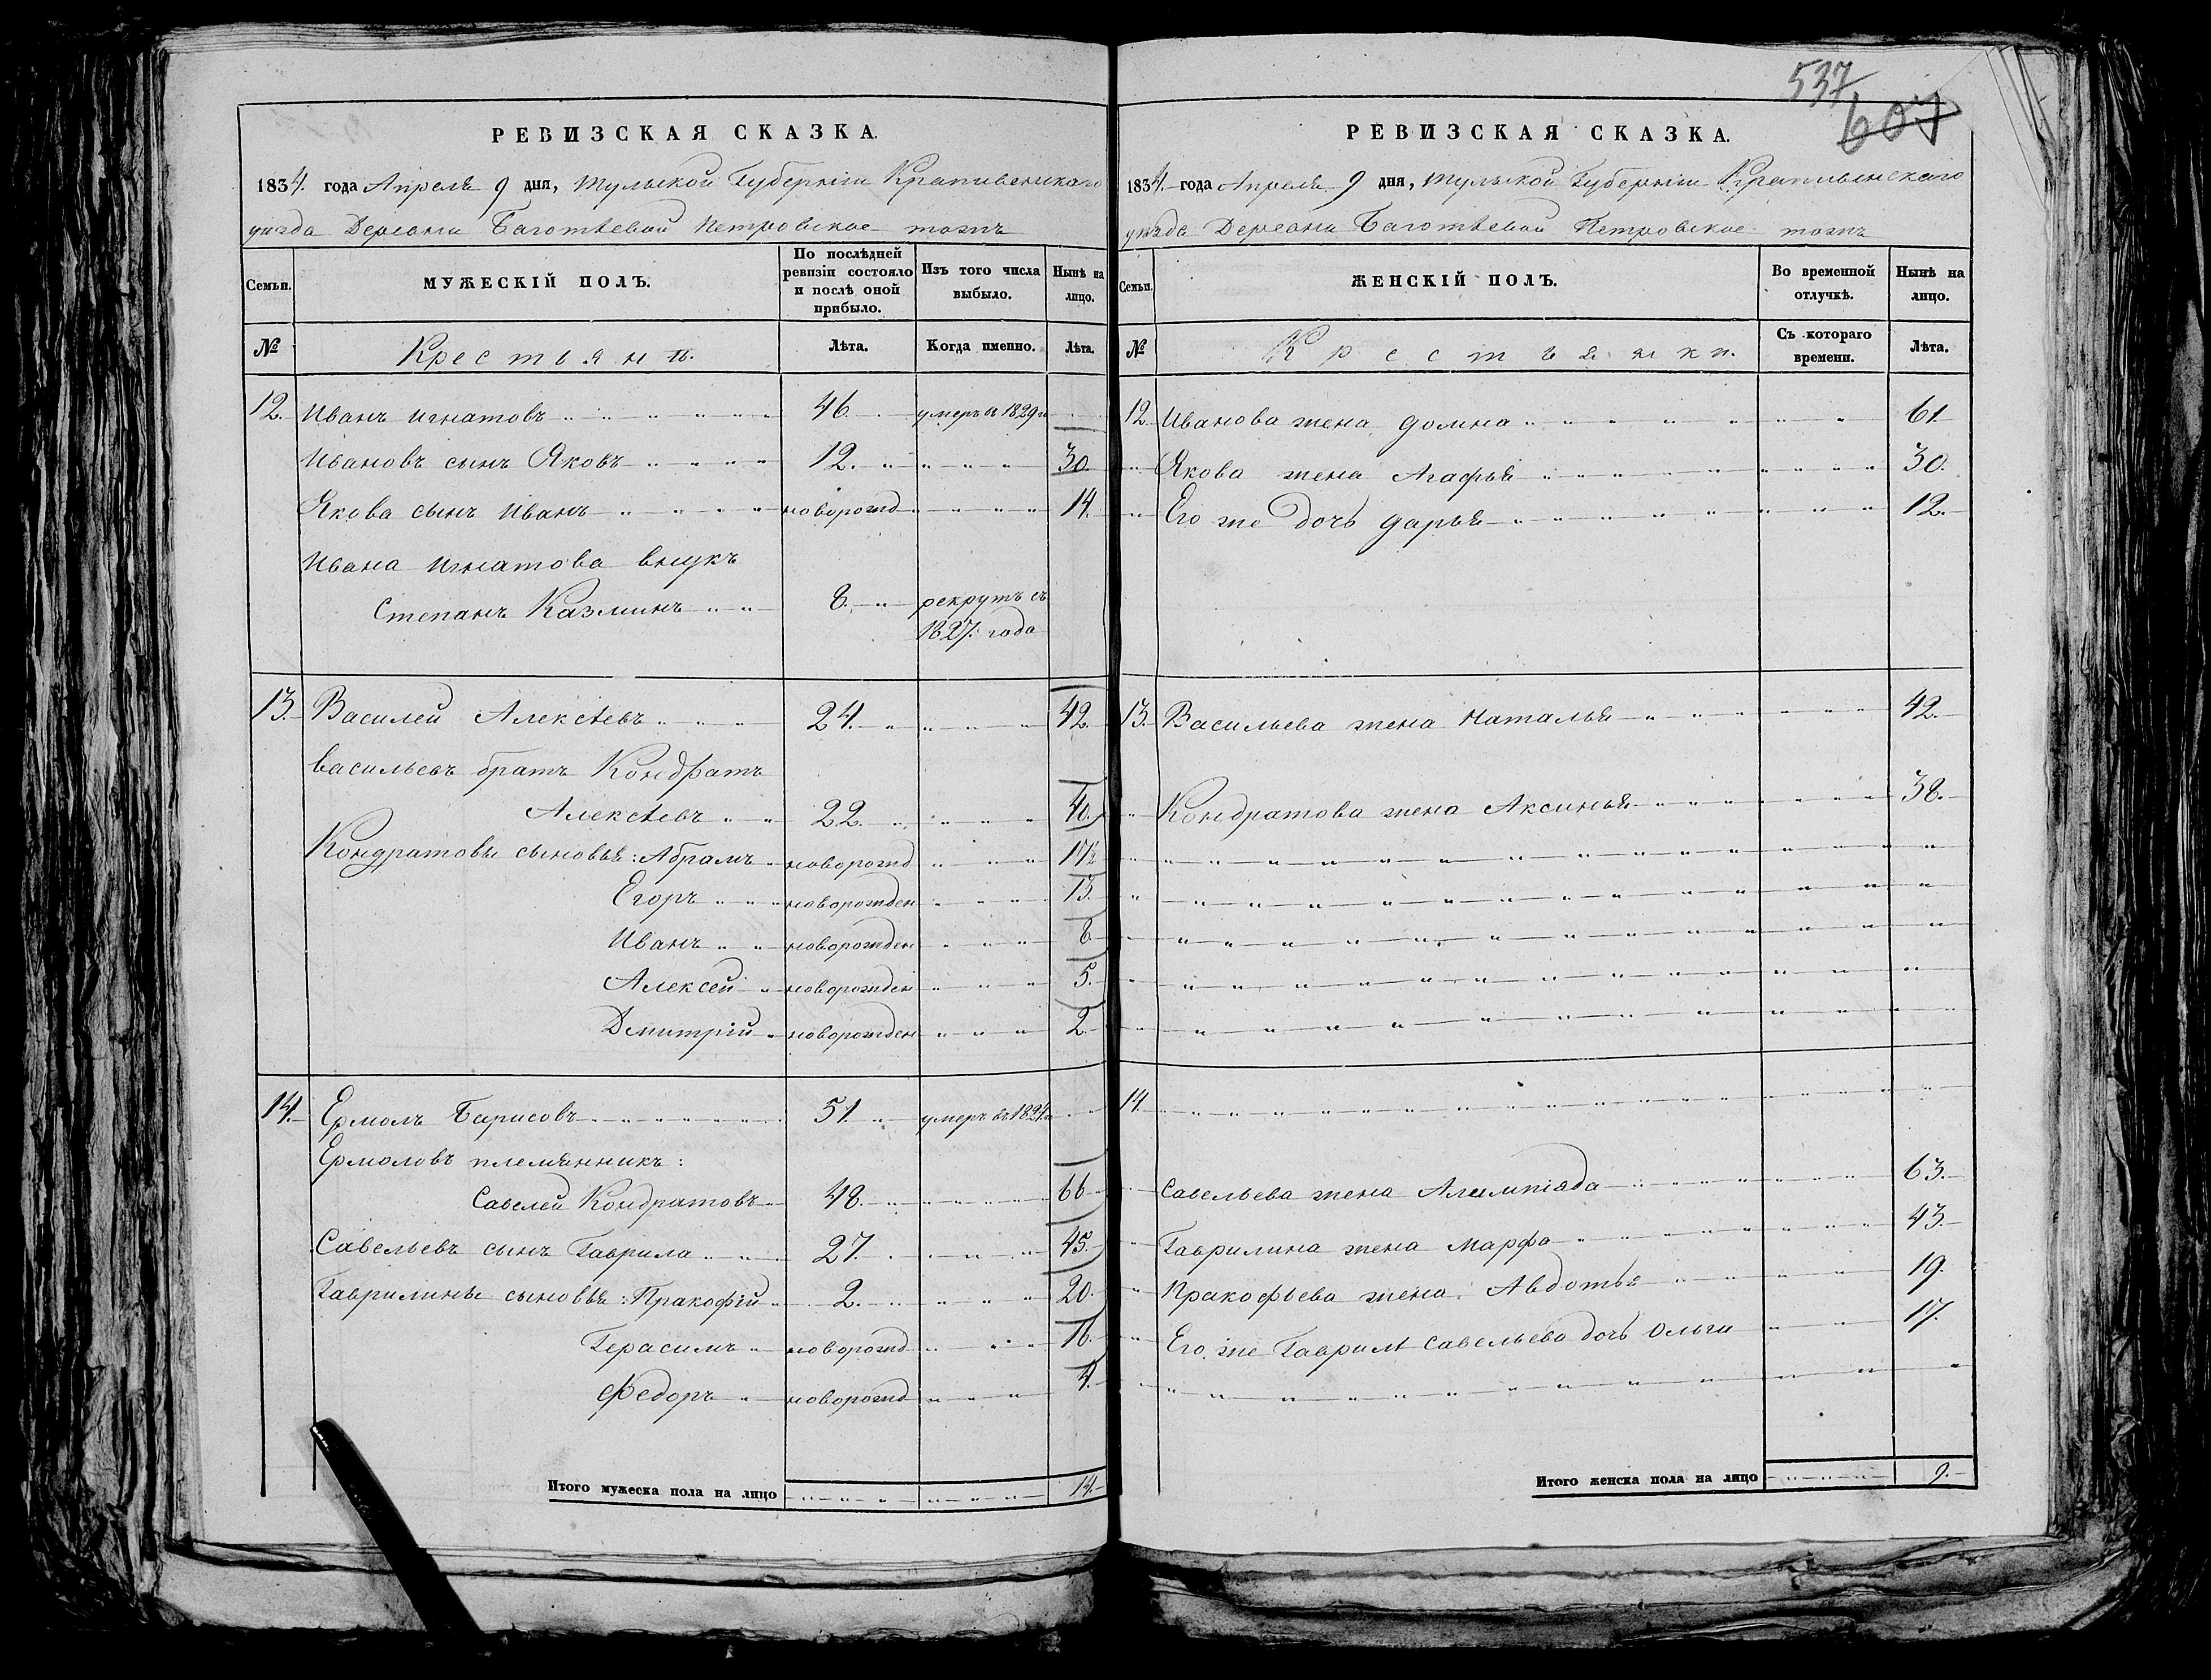 537
607
РЕВИЗСКАЯ СКАЗКА.
1834. года Апреля 9 дня, Тульской Губернии Крапивенскаго
уизда Деревни Баготѣевай Петровское тожъ
Семьи.
МУЖЕСКІЙ ПОЛЪ.
По послѣдней ревизіи состояло и послѣ оной прибыло.
Изъ того числа выбыло.
Нынѣ на лицо.
№
Крестьянъ.
Лѣта.
Когда именно.
Лѣта.
12. Иванъ Игнатовъ 46. умеръ въ 1829 г
Ивановъ сынъ Яковъ 12. 30
Якова сынъ Иванъ новорожд 14.
Ивана Игнатова внукъ
Степанъ Казминъ 8. рекрутъ съ
1827. года
13. Василей Алексѣевъ 24. 42.
Васильевъ братъ Кондратъ
Алексѣевъ 22. 40.
Кондратовы сыновья: Абрамъ новорожд 17½
Егоръ новорожден 13.
Иванъ новорожден 8
Алексей новорожден 5.
Дмитрій новорожден 2
14. Ермолъ Барисовъ 51. умеръ въ 1824 г
Ермоловъ племянникъ:
Савелей Кондратовъ 48. 66
Савельевъ сынъ Гаврила 27. 45.
Гаврилины сыновья: Пракофій 2. 20.
Герасимъ новорожд 16.
Федоръ новорожд 4.
Итого мужеска пола на лицо 14.
РЕВИЗСКАЯ СКАЗКА.
1834. года Апреля 9 дня, Тульской Губернии Крапивенскаго
уѣзда Деревни Баготѣевай Петровское тожъ
Семьи.
ЖЕНСКІЙ ПОЛЪ.
Во временной отлучкѣ.
Нынѣ на лицо.
№
Крестьянки.
Съ котораго времени.
Лѣта.
12. Иванова жена Домна 61.
Якова жена Агафья 30.
Его же дочь Дарья 12.
13. Васильева жена Наталья 42.
Кондратова жена Аксинья 38.
14.
Савельева жена Алимпіада 63.
Гаврилина жена Марфа 43.
Пракофьева жена Авдотья 19.
Его же Гаврилѣ Савельева дочь Ольга 17.
Итого женска пола на лицо 9.